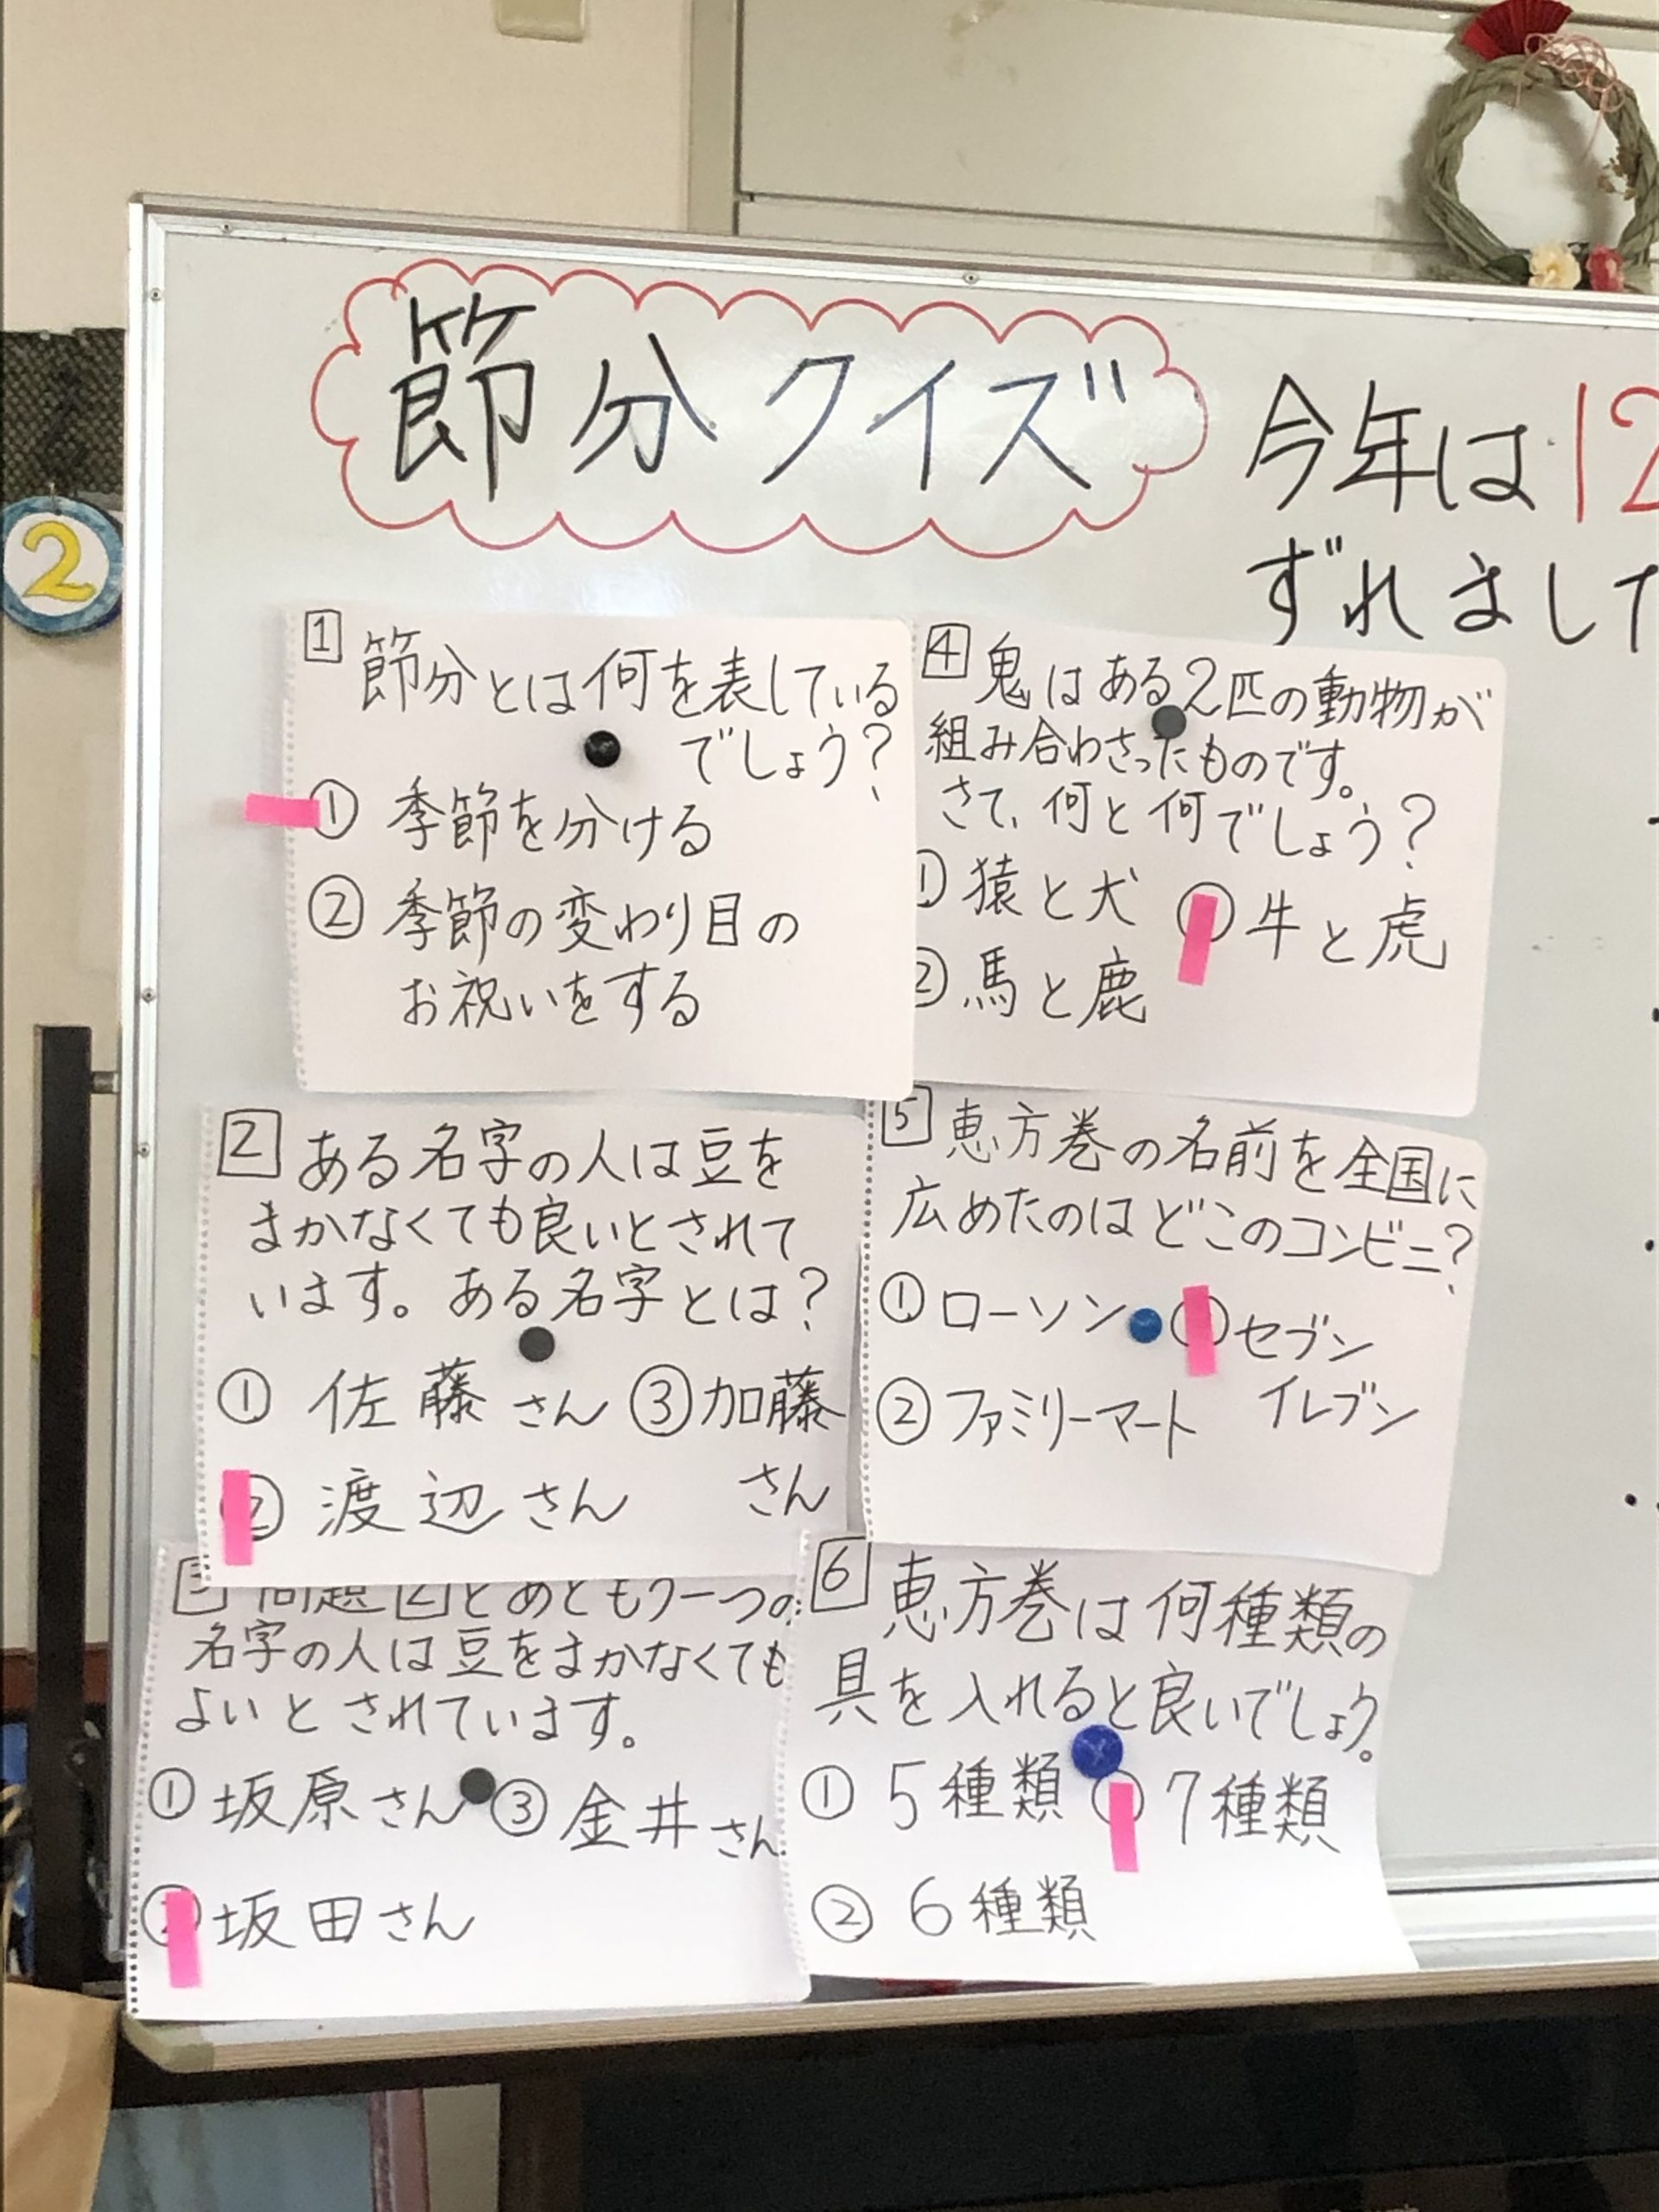 節分クイズ
今年は12
ずれました
2
1 節分とは何を表している
でしょう?
① 季節を分ける
② 季節の変わり目の
お祝いをする
2 ある名字の人は豆を
まかなくても良いとされて
います。ある名字とは?
① 佐藤さん ③ 加藤
さん
② 渡辺さん
3 問題2とあともう一つの
名字の人は豆をまかなくても
よいとされています。
① 坂原さん ③ 金井さん
② 坂田さん
4 鬼はある2匹の動物が
組み合わさったものです。
さて、何と何でしょう?
① 猿と犬 牛と虎
② 馬と鹿
5 恵方巻の名前を全国に
広めたのはどこのコンビニ?
① ローソン セブン
イレブン
② ファミリーマート
6 恵方巻は何種類の
具を入れると良いでしょう。
① 5種類 7種類
② 6種類